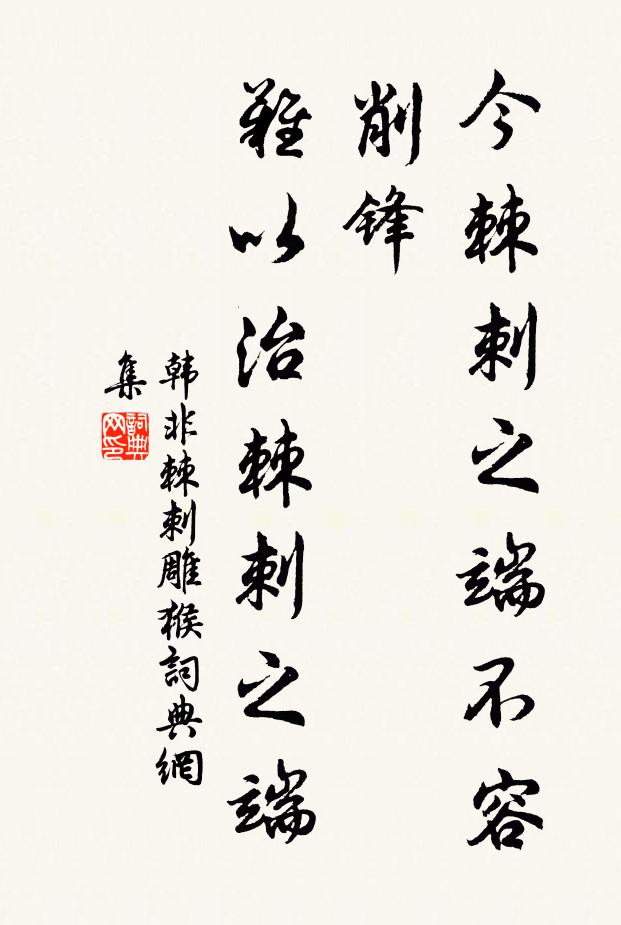 今棘刺之端不容
削锋
難以治棘刺之端
韩非棘刺雕猴詞典網
集
詞典
网印